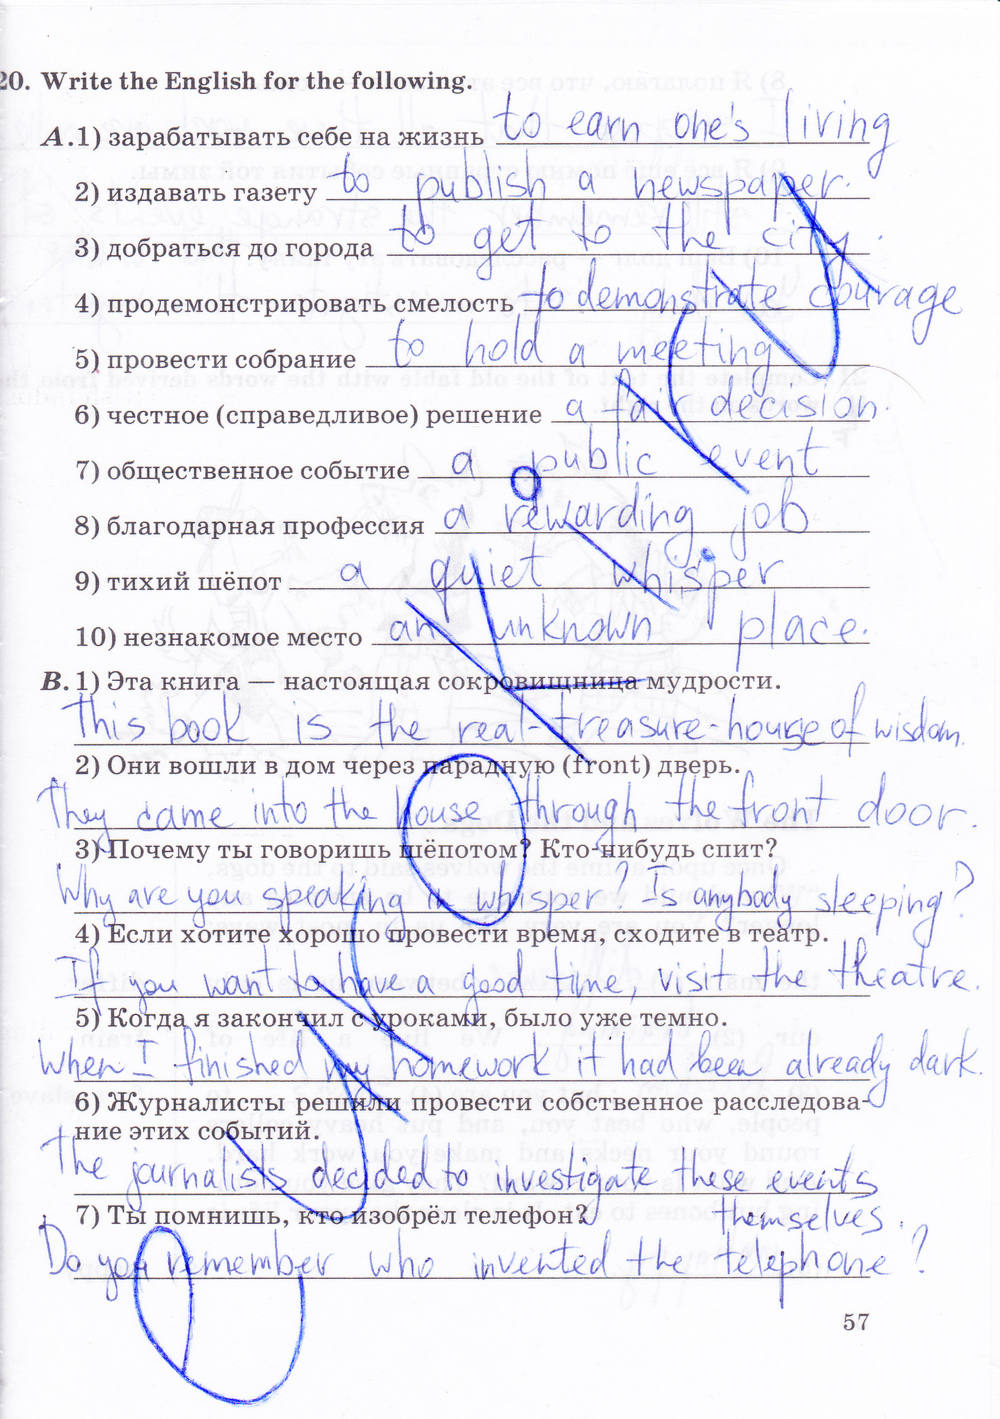 20. Write the English for the following.
A. 1) зарабатывать себе на жизнь to earn one's living
2) издавать газету to publish a newspaper.
3) добраться до города to get to the city.
4) продемонстрировать смелость to demonstrate courage
5) провести собрание to hold a meeting
6) честное (справедливое) решение a fair decision.
7) общественное событие a public event
8) благодарная профессия a rewarding job
9) тихий шёпот a quiet whisper
10) незнакомое место an unknown place.
B. 1) Эта книга — настоящая сокровищница мудрости.
This book is the real treasure-house of wisdom.
2) Они вошли в дом через парадную (front) дверь.
They came into the house through the front door.
3) Почему ты говоришь шёпотом? Кто-нибудь спит?
Why are you speaking in whisper? Is anybody sleeping?
4) Если хотите хорошо провести время, сходите в театр.
If you want to have a good time, visit the theatre.
5) Когда я закончил с уроками, было уже темно.
When I finished my homework it had been already dark.
6) Журналисты решили провести собственное расследова-
ние этих событий.
The journalists decided to investigate these events
themselves.
7) Ты помнишь, кто изобрёл телефон?
Do you remember who invented the telephone?
57